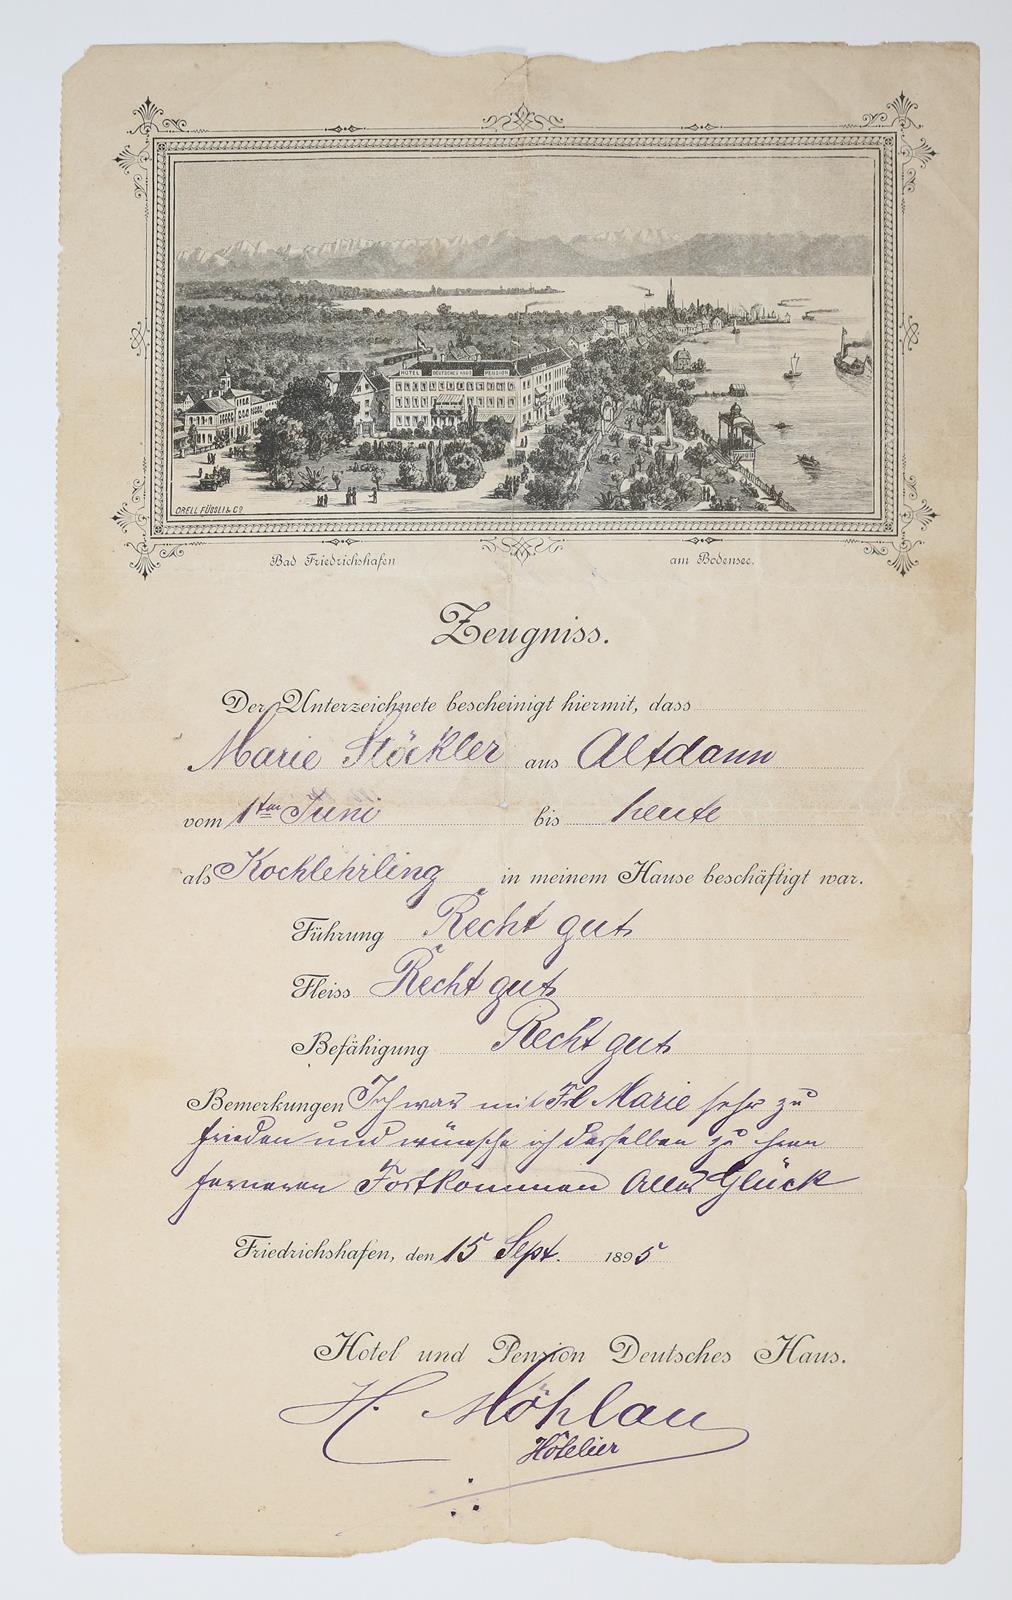 HOTEL DEUTSCHES HAUS PENSION
ORELL FÜSSLI & Cº
Bad Friedrichshafen am Bodensee.
Zeugniss.
Der Unterzeichnete bescheinigt hiermit, dass
Marie Stöckler aus Altdann
vom 1ten Juni bis heute
als Kochlehrling in meinem Hause beschäftigt war.
Führung Recht gut
Fleiss Recht gut
Befähigung Recht gut
Bemerkungen Ich war mit Frl Marie sehr zu
frieden und wünsche ich derselben zu ihrem
ferneren Fortkommen Alles Glück
Friedrichshafen, den 15 Sept. 1895
Hotel und Pension Deutsches Haus.
H. Möhlau
Hôtelier